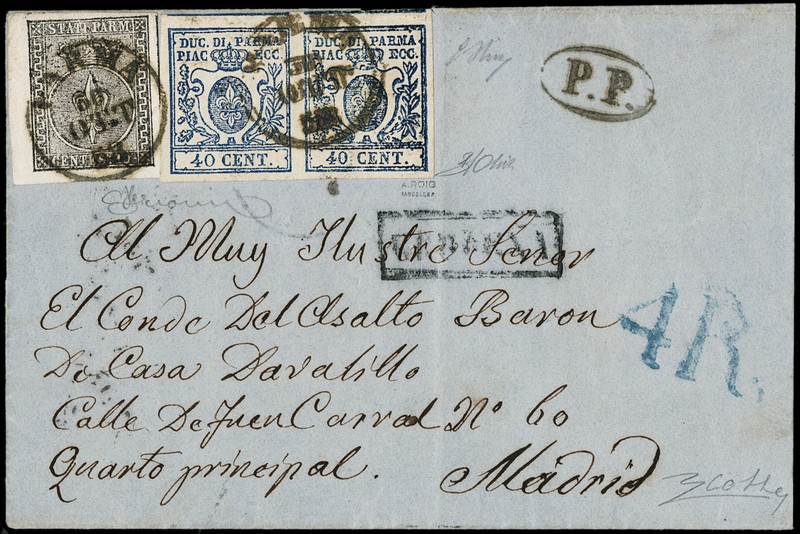 STATI PARM.
CENT.
DUC. DI PARMA
PIAC ECC.
40 CENT.
DUC. DI PARMA
PIAC ECC.
40 CENT.
PARMA
58
P.P.
A.ROIG
BARCELONA
Al Muy Ilustre Senor
El Conde Del Asalto Baron
De Casa Davalillo
Calle De Fuen Carral Nº 60
Quarto principal. Madrid
4R.